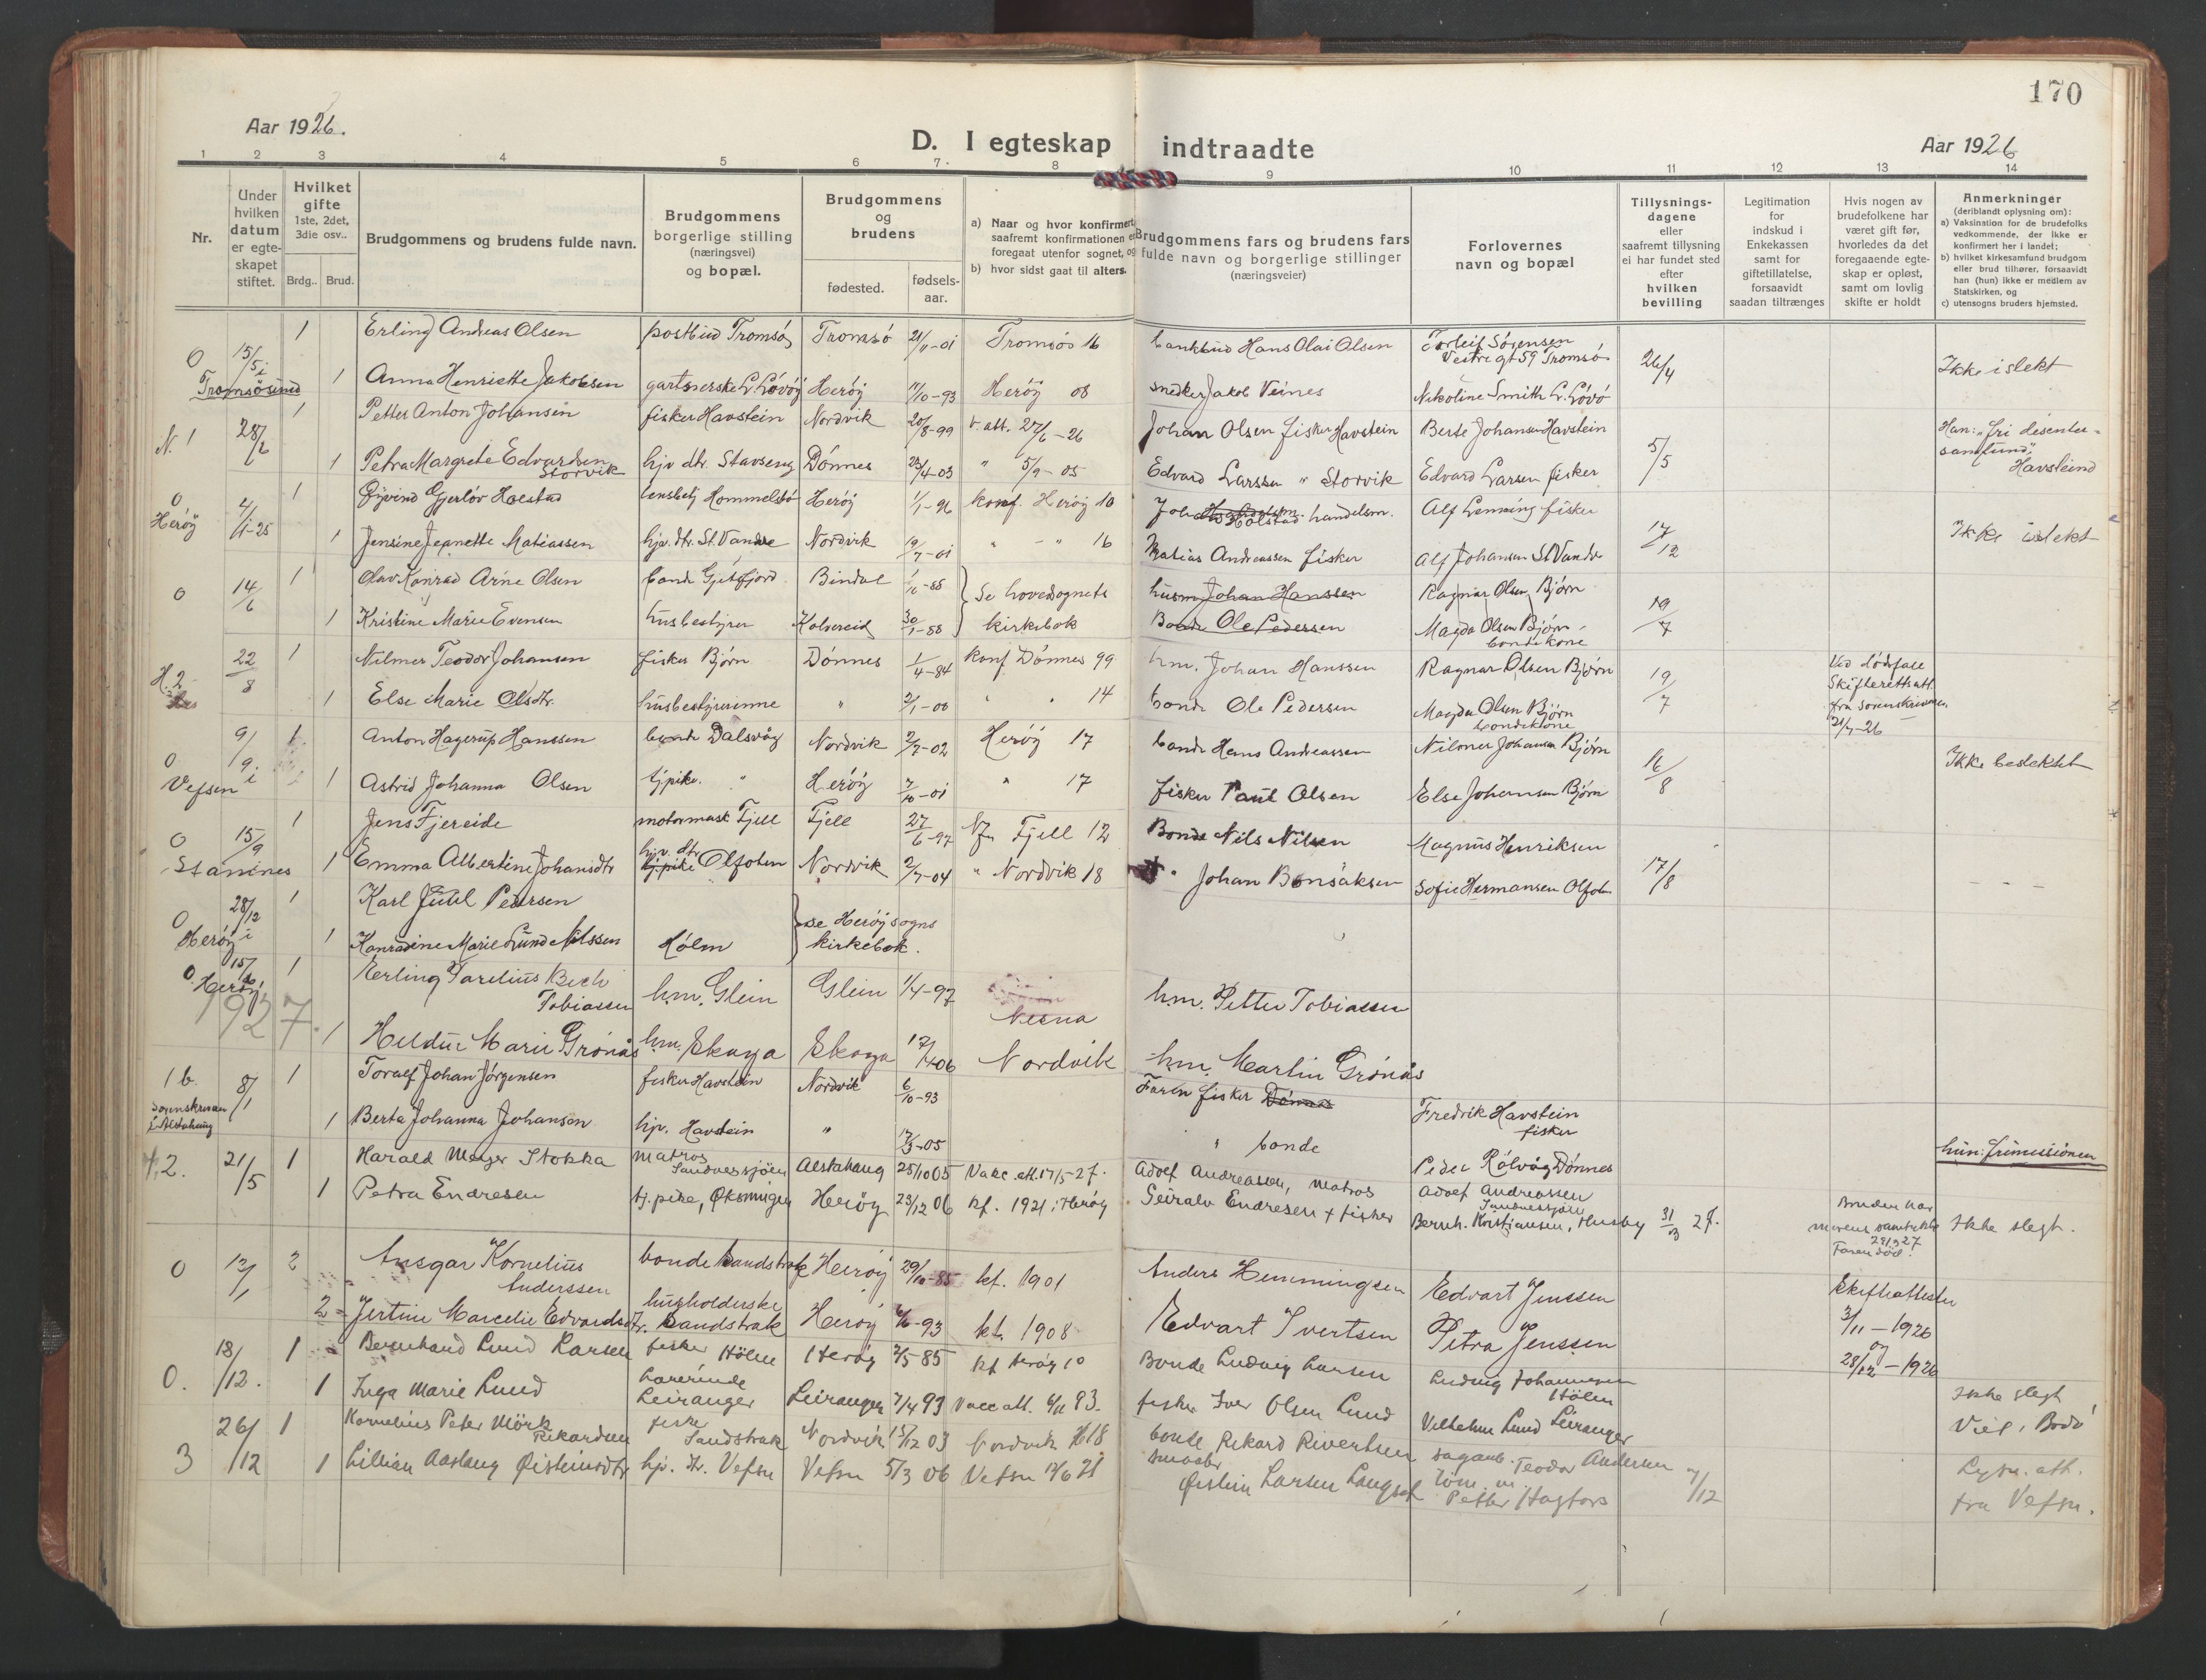 170
Aar 1926.
D. I egteskap indtraadte
Aar 1926
1 2 3 4 5 6 7 8 9 10 11 12 13 14
Nr.
Under hvilken datum er egteskapet stiftet.
Hvilket gifte 1ste, 2det, 3die osv..
Brdg.. Brud.
Brudgommens og brudens fulde navn.
Brudgommens borgerlige stilling (næringsvei) og bopæl.
Brudgommens og brudens
fødested.
fødsels-aar.
a) Naar og hvor konfirmert, saafremt konfirmationen er foregaat utenfor sognet, og
b) hvor sidst gaat til alters.
Brudgommens fars og brudens fars fulde navn og borgerlige stillinger (næringsveier)
Forlovernes navn og bopæl
Tillysnings-dagene eller saafremt tillysning ei har fundet sted efter hvilken bevilling
Legitimation for indskud i Enkekassen samt for giftetillatelse, forsaavidt saadan tiltrænges
Hvis nogen av brudefolkene har været gift før, hvorledes da det foregaaende egte-skap er opløst, samt om lovlig skifte er holdt
Anmerkninger (deriblandt oplysning om):
a) Vaksination for de brudefolks vedkommende, der ikke er konfirmert her i landet;
b) hvilket kirkesamfund brudgom eller brud tilhører, forsaavidt han (hun) ikke er medlem av Statskirken, og
c) utensogns bruders hjemsted.
O 15/5 i 1 Erling Andreas Olsen postbud Tromsö Tromsö 21/11-01 Tromsö 16 bankbud Hans Olai Olsen Torleif Sörensen Vestregt 59 Tromsö 26/4 Ikke i slekt
Tromsösund 1 Anna Henriette Jakobsen gartnerske L. Lövöy Heröy 11/10-93 Heröy 08 snedker Jakob Veines Nikoline Smith L. Lövö
N. 1 28/6 1 Petter Anton Johansen fisker Havstein Nordvik 20/8-99 v. att. 27/6-26 Johan Olsen fisker Havstein Berte Johansen Havstein 5/5 Han: "fri desenter-samfund", Havsteind
1 Petra Margrete Edvardsen Storvik hjv dtr. Stavseng Dönnes 23/4-03 " 5/9-05 Edvard Larssen " Storvik Edvard Larsen fisker
O Heröy 4/1-25 1 Öyvind Gjerlöv Holstad lensbetj Hommelstö Heröy 1/1-96 konf. Heröy 10 Joh. Holstad handelsm. Alf Lenning fisker 17/12 Ikke i slekt
1 Jensine Jeanette Matiassen hjv. dtr. St. Vandve Nordvik 19/7-01 " - " 16 Matias Andreassen fisker Alf Johansen St. Vandve
O 14/6 1 Olav Konrad Arne Olsen bonde Gjetsfjord Bindal -88 Se hovedsognets kirkebok husm Johan Hanssen Ragnar Olsen Björn 19/7
1 Kristine Marie Evensen husbestyrer Kolvereid 30/1-88 Bonde Ole Pedersen Magda Olsen Björn bondekone
H. 2 22/8 1 Nilmer Teodor Johansen fisker Björn Dönnes 1/4-84 konf Dönnes 99 hm. Johan Hanssen Ragnar Olsen Björn 19/7 Ved dödsfall Skifterettsatt. fra sorenskriveren 21/7-26
1 Else Marie Olsdtr. husbestyrerinne " 2/1-00 " " 14 bonde Ole Pedersen Magda Olsen Björn bondekone
O 9/9 i Vefsen 1 Anton Hagerup Hanssen bonde Dalsvåg Nordvik 2/7-02 Heröy 17 bonde Hans Andreassen Nilmer Johansen Björn 16/8 Ikke beslektet
1 Astrid Johanna Olsen tjpike. " Heröy 7/10-01 " 17 fisker Paul Olsen Else Johansen Björn
O 15/9 Stamnes 1 Jens Fjereide motormask Fjell Fjell 27/6-97 Fjell 12 Bonde Nils Nilsen Magnus Henriksen 17/8 - - -
1 Emma Albertine Johansdtr hjv. dtr. tjpike Olfoten Nordvik 2/7-04 " Nordvik 18 " Johan Bonsaksen Sofie Hermansen Olfot
O 28/12 i Heröy 1 Karl Juul Pedersen se Heröy sogns kirkebok.
1 Konradine Marie Lund Nilssen Hölm
O. 15/ Heröy 1 Erling Parelius Bech Tobiassen hm. Glein Glein 1/4-97 Nesna hm. Petter Tobiassen
1927.
1 Heldur Marie Grönås hm. Skaga Skaga 12/4 06 Nordvik hm. Martin Grönås
1 b. 8/1 1 Toralf Johan Jörgensen fisker Havstein Nordvik 6/10-93 Faren fisker Dönnes Fredrik Havstein fisker
Sorenskriveren i Alstahaug 1 Berta Johanna Johansen hjv. Havstein " 12/3-05 " bonde Peder Rölvåg Dönnes hun: frimissionen
2. 21/5 1 Harald Meyer Stokka matros Sandnessjöen Alstahaug 25/10 05 Vakc. att. 17/5-27. Adolf Andreassen, matros Adolf Andreassen Sandnessjöen 31/3 27. Bruden har morens samtykke 29/3 27 Faren död. Ikke slegt.
1 Petra Endresen tj. pike, Øksningen Heröy 23/12 06 kf. 1921 i Heröy Endresen + fisker Bernh. Kristjansen, Husby
O 12/1 2 Ansgar Kornelius Anderssen bonde Sandstrak Heröy 29/10-85 kf. 1901 Anders Hemmingsen Edvart Jenssen Skifteattester 3/11-1926 og 28/12-1926
2 Jertine Marcelie Edvardsdtr. husholderske Sandstrak Heröy 4/6-93 kf. 1908 Edvart Ivertsen Petra Jenssen
O. 18/12. 1 Bernhard Lund Larsen fisker Hölm Heröy 2/5 85 kf Heröy 10 Bonde Ludvig Larsen Ludvig Johannesen Hölm Ikke slegt
1 Inga Marie Lund Lærerinde Leiranger Leiranger 7/4 93 Vacc att. 6/11 93. fisker Iver Olsen Lund Vilhelm Lund Leiranger Viet i Bodö
3 26/12 1 Kornelius Peter Mörk Rikardsen fisker Sandstrak Nordvik 15/12 03 Nordvik 18 bonde Rikard Rivertsen sagarb. Teodor Andersen 7/12 Lysn. att. fra Vefsn.
1 Lillian Aaslaug Øisteinsdtr hjv. tr. Vefsn Vefsn 5/3 06 Vefsn 12/6 21 snedker Øistein Larsen Petter Hagfors